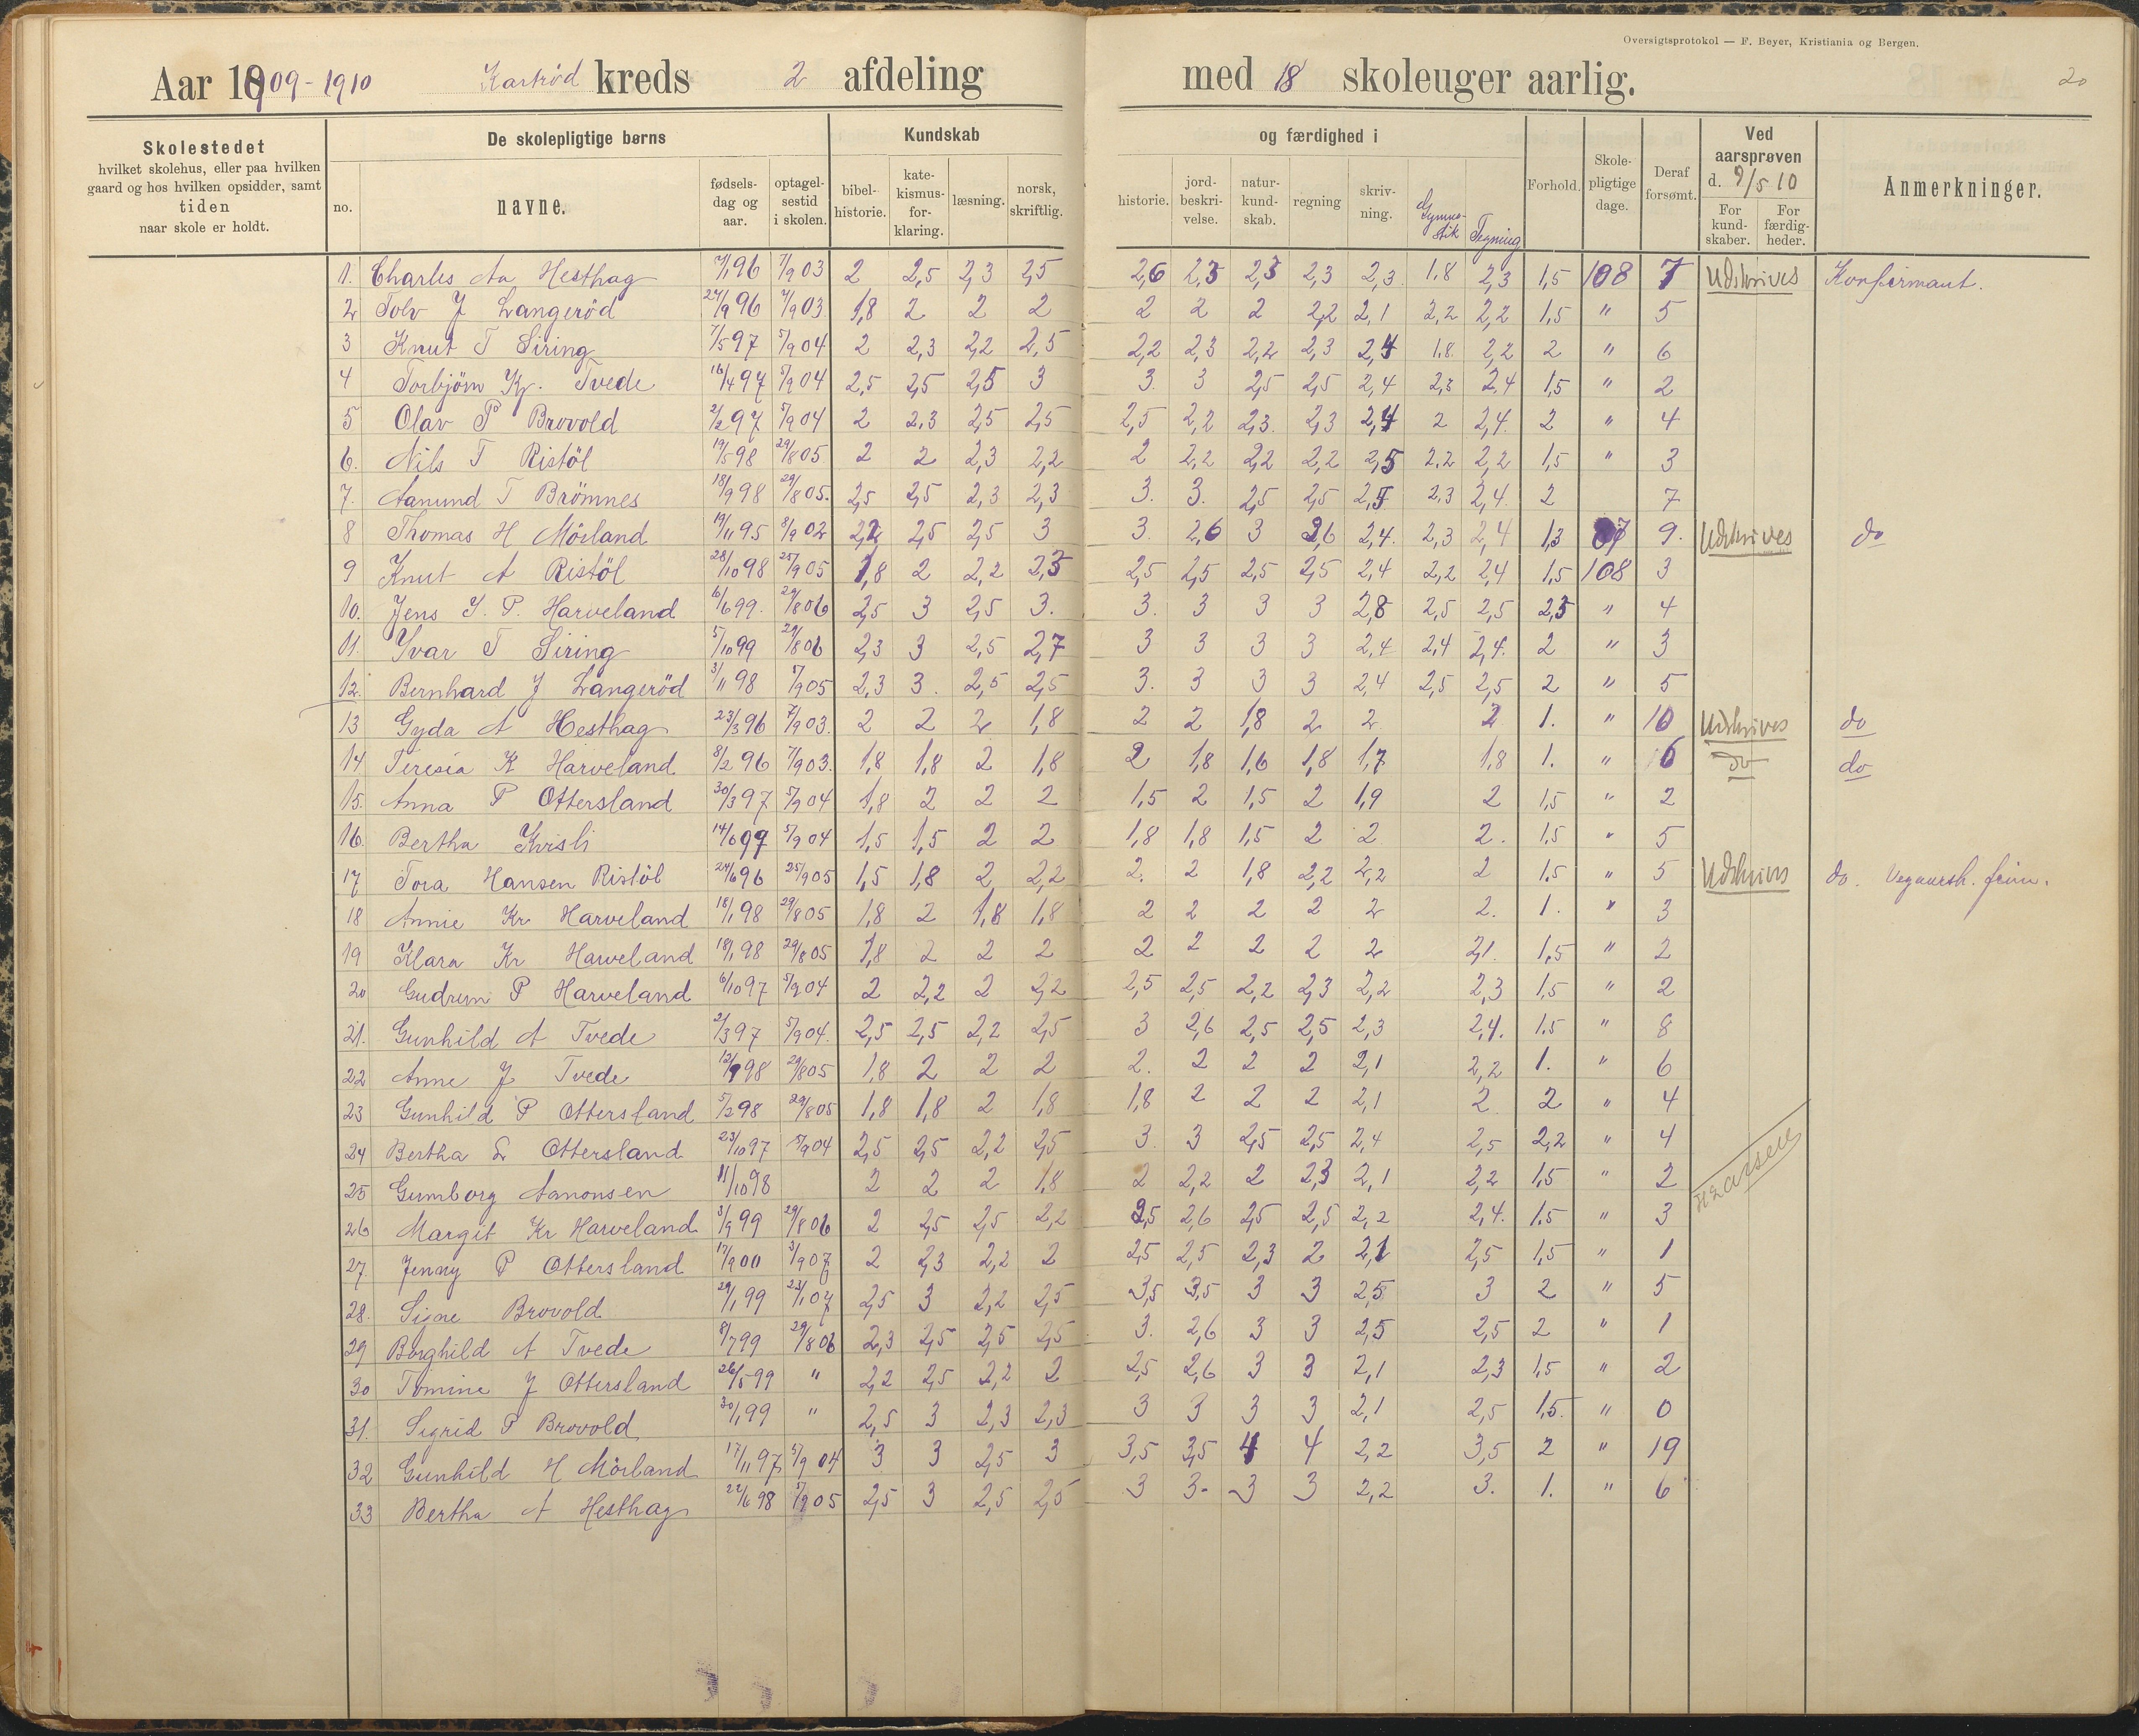 Oversigtsprotokol — F. Beyer, Kristiania og Bergen.
20
Aar 1909-1910 Kastrød kreds 2 afdeling med 18 skoleuger aarlig.
Skolestedet
hvilket skolehus, eller paa hvilken
gaard og hos hvilken opsidder, samt
tiden
naar skole er holdt.
De skolepligtige børns
no. navne. fødsels-dag og aar. optagel-sestid i skolen.
Kundskab og færdighed i
bibel-historie. kate-kismus-for-klaring. læsning. norsk, skriftlig. historie. jord-beskri-velse. natur-kund-skab. regning skriv-ning. Gymna-stik Tegning
Forhold. Skole-pligtige dage. Deraf forsømt.
Ved aarsprøven d. 9/5 10
For kund-skaber. For færdig-heder.
Anmerkninger.
1. Charles Aa Hesthag 7/1 96 7/9 03 2 2,5 2,3 2,5 2,6 2,3 2,3 2,3 2,3 1,8 2,3 1,5 108 7 Udskrives Konfirmant.
2 Tolv J Langeröd 27/9 96 7/9 03 1,8 2 2 2 2 2 2 2,2 2,1 2,2 2,2 1,5 " 5
3 Knut T Siring 7/5 97 5/9 04 2 2,3 2,2 2,5 2,2 2,3 2,2 2,3 2,4 1,8 2,2 2 " 6
4 Torbjörn Kr. Tvede 16/4 97 5/9 04 2,5 2,5 2,5 3 3. 3 2,5 2,5 2,4 2,3 2,4 1,5 " 2
5 Olav P Brovold 2/2 97 5/9 04 2 2,3 2,5 2,5 2,5 2,2 2,3. 2,3 2,4 2 2,4. 2 " 4
6. Nils T Ristöl 19/5 98 29/8 05 2 2 2,3 2,2 2 2,2 2,2 2,2 2,5 2,2 2,2 1,5 " 3
7. Aanund T Brömnes 18/9 98 29/8 05. 2,5 2,5 2,3 2,3 3. 3. 2,5 2,5 2,5 2,3 2,4. 2 7
8 Thomas H Mörland 19/11 95 8/9 02 2,2 2,5 2,5 3 3. 2,6 3 2,6 2,4. 2,3 2,4 1,3 9. Udskrives do
9 Knut A Ristöl 28/10 98 25/9 05 1,8 2 2,2 2,3 2,5 2,5 2,5 2,5 2,4 2,2 2,4 1,5 108 3
10. Jens J. P. Harveland 6/6 99. 29/8 06 2,5 3 2,5 3. 3. 3 3 3 2,8 2,5 2,5 2,3 " 4
11. Yvar T Siring 5/10 99 29/8 06 2,3 3 2,5 2,7 3 3 3 3 2,4 2,4 2,4. 2 " 3
12. Bernhard J Langeröd 3/11 98 5/9 05 2,3 3. 2,5 2,5 3. 3 3 3 2,4 2,5 2,5 2 " 5
13 Gyda A Hesthag 23/3 96 7/9 03. 2 2 2 1,8 2 2 1,8 2 2 2 1. " 10 Udskrives do
14 Teresia K Harveland 8/2 96 7/9 03. 1,8 1,8 2 1,8 2 1,8 1,6 1,8 1,7 1,8 1. " 6 do do
15. Anna P Ottersland 30/3 97 5/9 04 1,8 2 2 2 1,5 2 1,5 2 1,9 2 1,5 " 2
16. Bertha Kvisli 14/6 97 5/9 04 1,5 1,5 2 2 1,8 1,8 1,5 2 2 2. 1,5 " 5
17 Tora Hansen Ristöl 24/6 96 25/9 05 1,5 1,8 2 2,2 2. 2 1,8 2,2 2,2 2 1,5 " 5 Udskrives do.
18 Annie Kr Harveland 18/1 98 29/8 05 1,8 2 1,8 1,8 2 2 2 2 2 2. 1. " 3
19 Klara Kr Harveland 18/1 98 29/8 05 1,8 2 2 2 2 2 2 2 2 2,1. 1,5 " 2
20 Gudrun P Harveland 6/10 97 5/9 04 2 2,2 2 2,2 2,5 2,5 2,2 2,3 2,2 2,3 1,5 " 2
21. Gunhild A Tvede 2/3 97 5/9 04. 2,5 2,5 2,2 2,5 3 2,6 2,5 2,5 2,3 2,4. 1,5 " 8
22 Anne J Tvede 12/9 98 29/8 05 1,8 2 2 2 2. 2 2 2 2,1 2,2 1. " 6
23 Gunhild P Ottersland 5/2 98 29/8 05 1,8 1,8 2 1,8 1,8 2 2 2 2,1 2 2 " 4
24 Bertha L Ottersland 23/10 97 5/9 04 2,5 2,5 2,2 2,5 3. 3 2,5 2,5 2,4 2,5 2,2 " 4
25 Gumborg Aanonsen 11/10 98 2 2 2 1,8 2 2,2 2 2,3 2,1 2,2 1,5 " 2
26 Margit Kr Harveland 3/9 99 29/8 06 2 2,5 2,5 2,2 2,5 2,6 2,5 2,5 2,2 2,4. 1,5 " 3
27. Jenny P Ottersland 17/9 00 3/9 07 2 2,3 2,2 2 2,5 2,5 2,3 2 2,1 2,5 1,5 " 1
28. Signe Brovold 29/1 99 23/1 07 2,5 3 2,2 2,5 3,5 3,5 3 3 2,5 3 2 " 5
29 Borghild A Tvede 8/7 99 29/8 06 2,3 2,5 2,5 2,5 3. 2,6 3 3 2,5 2,5 2 " 1
30 Tomine J Ottersland 26/5 99 " 2,2 2,5 2,2 2 2,5 2,6 3 3 2,1 2,3 1,5 " 2
31. Sigrid P Brovold 30/1 99 " 2,5 3 2,3 2,3 3 3 3 3 2,1 2,5 1,5. " 0
32 Gunhild H Mörland 17/11 97 5/9 04 3 3 2,5 3 3,5 3,5 4 4 2,2 3,5 2 " 19
33 Bertha A Hesthag 22/6 98 5/9 05 2,5 3 2,5 2,5 3 3- 3 3 2,2 3. 1. " 6